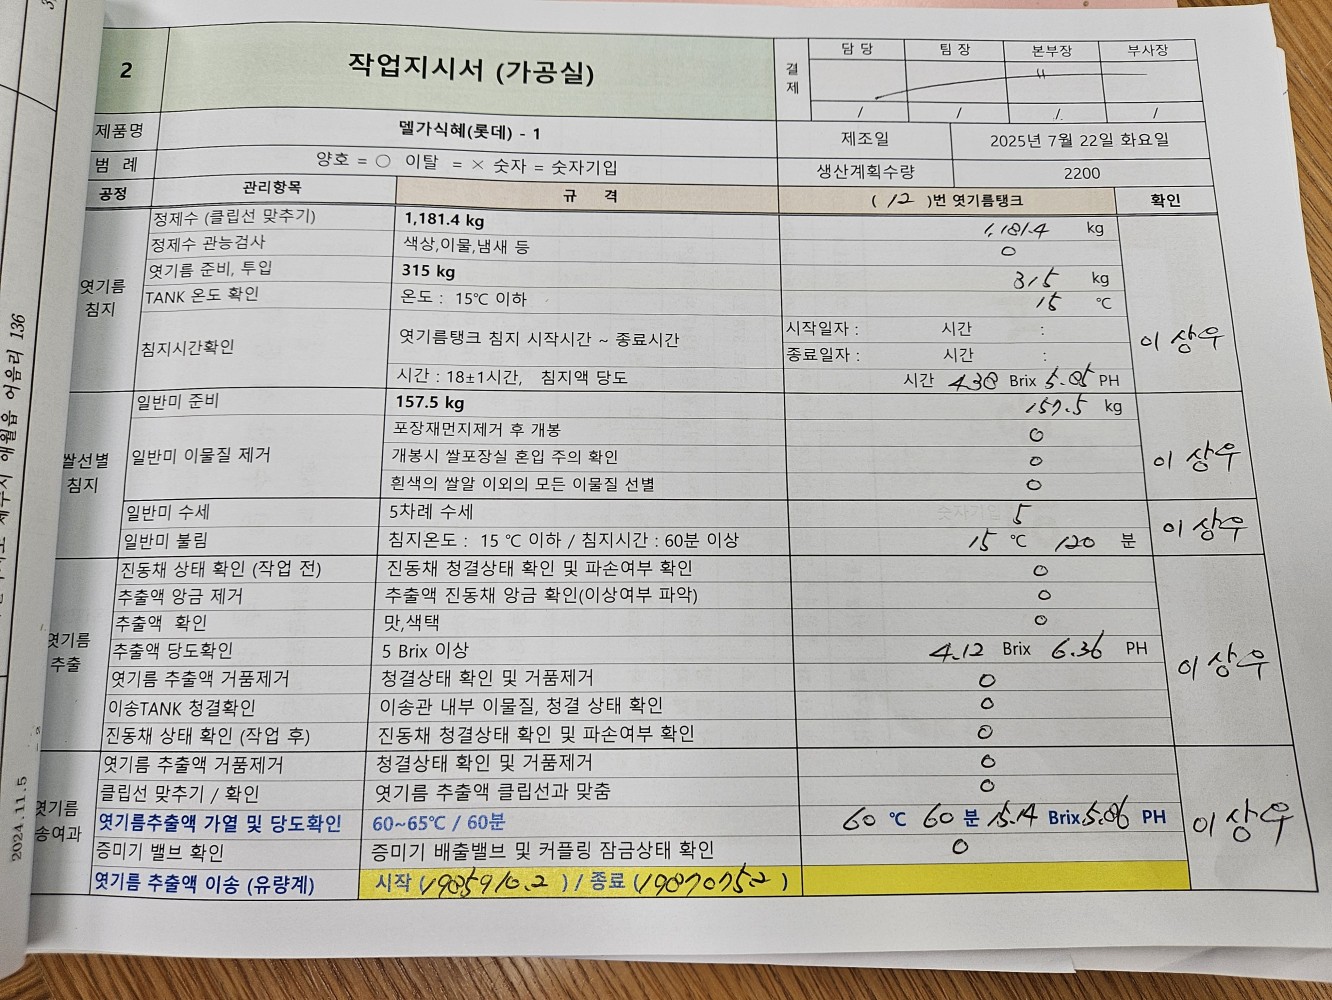 2
작업지시서 (가공실)
결제
담 당 팀 장 본부장 부사장
/ / /. /
제품명 델가식혜(롯데) - 1 제조일 2025년 7월 22일 화요일
범 례 양호 = ○ 이탈 = × 숫자 = 숫자기입 생산계획수량 2200
공정 관리항목 규 격 ( 12 )번 엿기름탱크 확인
엿기름 침지
정제수 (클립선 맞추기) 1,181.4 kg 1,181.4 kg
정제수 관능검사 색상,이물,냄새 등 ○
엿기름 준비, 투입 315 kg 315 kg
TANK 온도 확인 온도 : 15℃ 이하 15 ℃
침지시간확인 엿기름탱크 침지 시작시간 ~ 종료시간 시작일자 : 시간 :
종료일자 : 시간 :
시간 : 18±1시간, 침지액 당도 시간 4.38 Brix 5.85 PH
이상우
쌀선별 침지
일반미 준비 157.5 kg 157.5 kg
일반미 이물질 제거 포장재먼지제거 후 개봉 ○
개봉시 쌀포장실 혼입 주의 확인 ○
흰색의 쌀알 이외의 모든 이물질 선별 ○
이상우
일반미 수세 5차례 수세 5
일반미 불림 침지온도 : 15 ℃ 이하 / 침지시간 : 60분 이상 15 ℃ 120 분
이상우
엿기름 추출
진동채 상태 확인 (작업 전) 진동채 청결상태 확인 및 파손여부 확인 ○
추출액 앙금 제거 추출액 진동채 앙금 확인(이상여부 파악) ○
추출액 확인 맛,색택 ○
추출액 당도확인 5 Brix 이상 4.12 Brix 6.36 PH
엿기름 추출액 거품제거 청결상태 확인 및 거품제거 ○
이송TANK 청결확인 이송관 내부 이물질, 청결 상태 확인 ○
진동채 상태 확인 (작업 후) 진동채 청결상태 확인 및 파손여부 확인 ○
이상우
엿기름 송여과
엿기름 추출액 거품제거 청결상태 확인 및 거품제거 ○
클립선 맞추기 / 확인 엿기름 추출액 클립선과 맞춤 ○
엿기름추출액 가열 및 당도확인 60~65℃ / 60분 60 ℃ 60 분 15.14 Brix 5.86 PH
증미기 밸브 확인 증미기 배출밸브 및 커플링 잠금상태 확인 ○
엿기름 추출액 이송 (유량계) 시작 (1985910.2 ) / 종료 (1987075.2 )
이상우
애월읍 어음리 136
2024.11.5